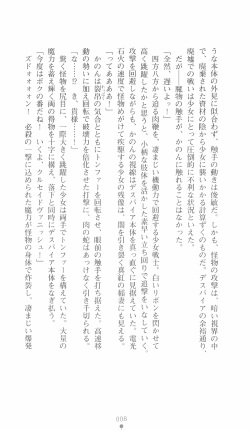 うな本体の外見に似合わず、触手の動きは俊敏だ。しかも、怪物の攻撃は、暗い視界の中
で、廃棄された資材の陰から少女に襲いかかる計算ずくのものだ。デスパイアの余裕通り、
廃墟での戦いは少女にとって圧倒的に不利な状況といえた。
だが――魔物の触手が、かのんに触れることはなかった。
「全然、遅いよ!」
四方八方から迫る肉鞭を、凄まじい機動力で回避する少女戦士。白いリボンを閃かせて
高く跳躍したかと思うと、小柄な肢体を活かした素早い立ち回りで追撃をいなしていく。
攻撃を回避しながらも、かのんの視線はデスパイア本体を真っ直ぐに見据えていた。電光
石火の速度で怪物めがけて疾駆する少女の残像は、闇を切り裂く真紅の稲妻にも見える。
かのんは裂帛の気合とともにトンファーを回転させ、眼前の触手を打ち据えた。高速移
動の勢いに加え、回転で破壊力を倍化させた打撃に、肉の蛇はあっけなく引き千切られる。
「な……!? き、貴様……!」
驚く怪物を尻目に、一際大きく跳躍した少女は両手でトンファーを構えていた。大量の
魔力を蓄えて輝く両の得物を十字に構え、落下と同時にデスパイア本体をなぎ払う。
「今度はボクの番だね! いくよ、クルセイドヴァニッシュ!」
ズドォオォン! 必殺の一撃に込められた魔力が怪物の身体で炸裂し、凄まじい爆発
008